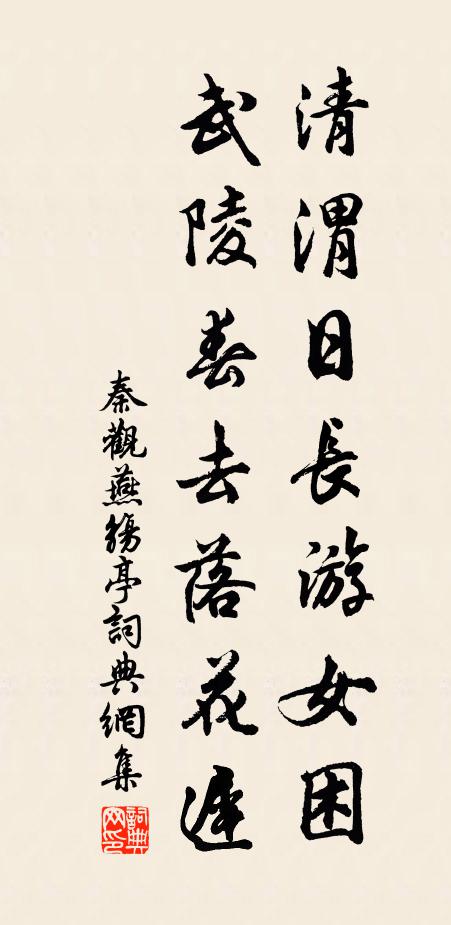 清渭日長游女困
武陵春去落花遲
秦觀燕觴亭詞典網集
詞典網印